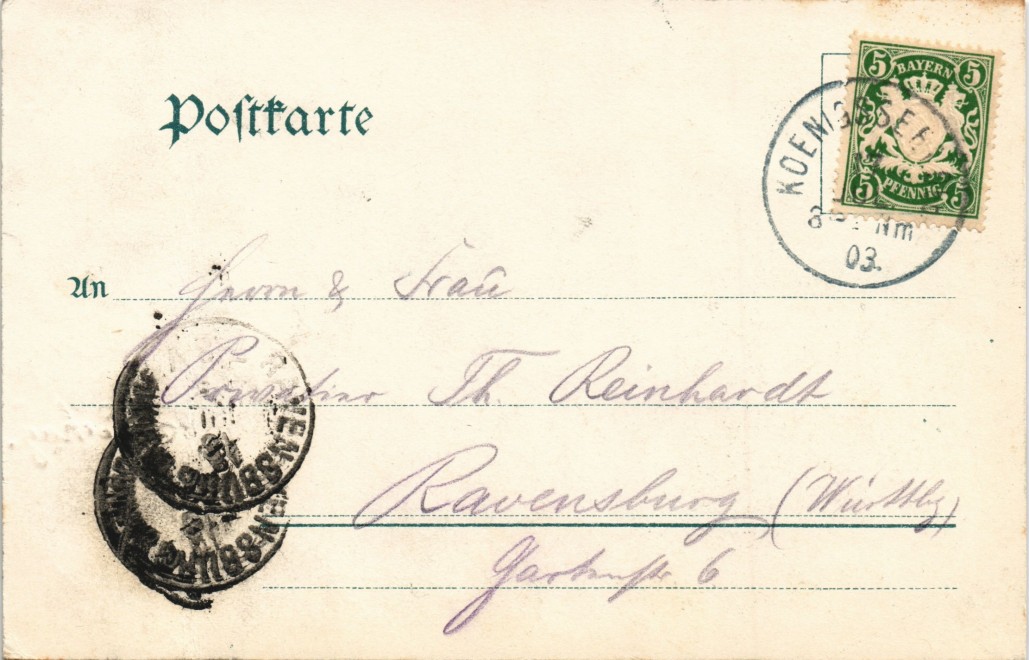 Postkarte
5 BAYERN 5
5 PFENNIG 5
KOENIGSSEE
Nm
03.
An Herrn & Frau
Privatier Th. Reinhardt
Ravensburg (Württbg)
Gartenstr 6
RAVENSBURG